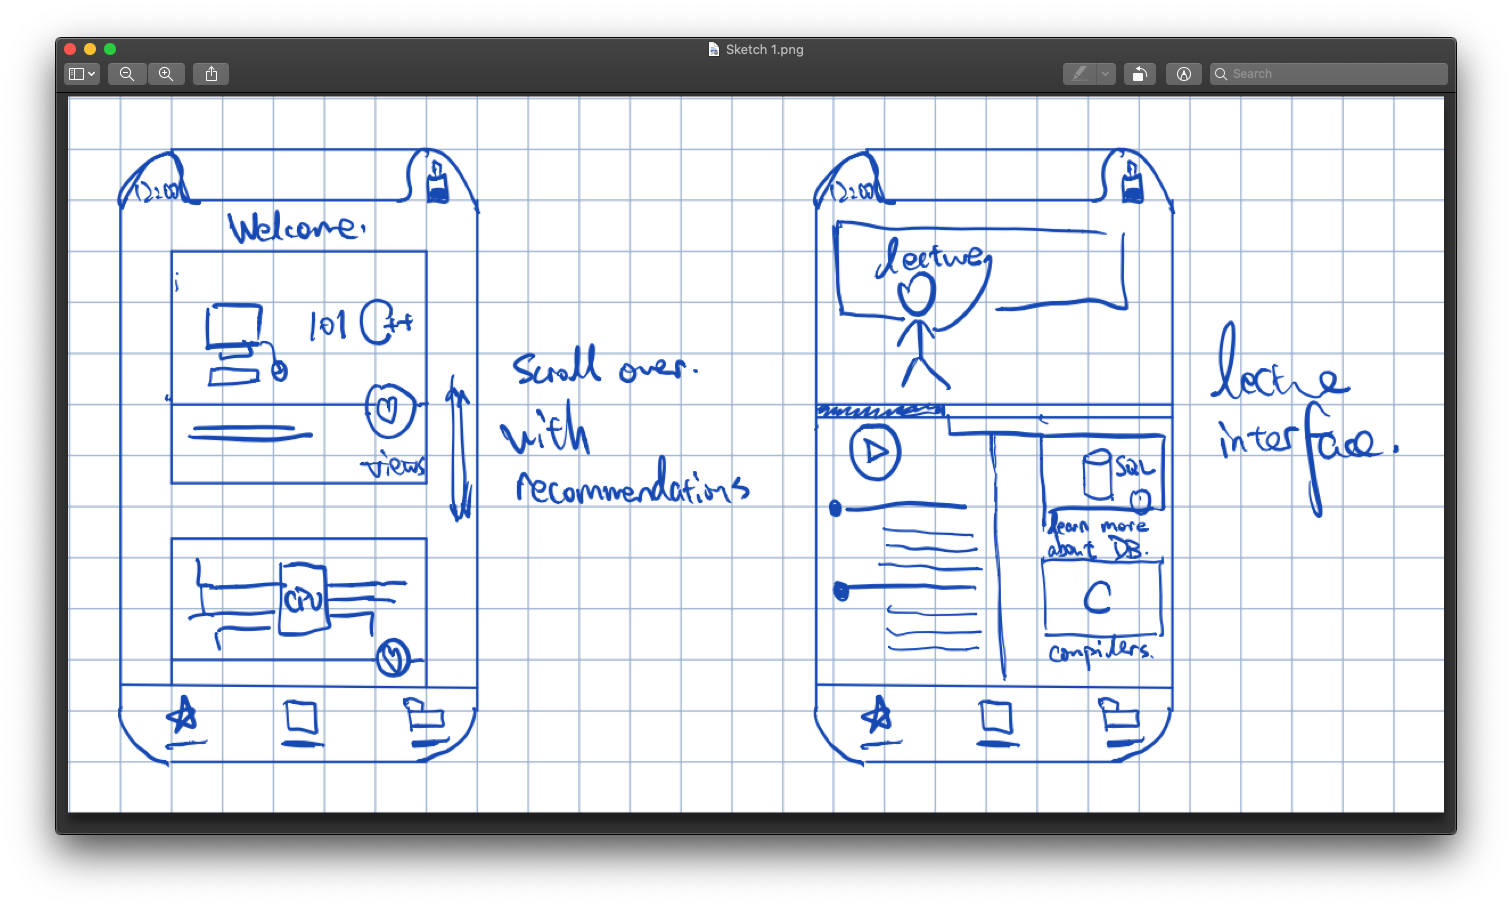 Sketch 1.png
Search
12:00
Welcome.
101 C++
views
CPU
Scroll over.
with
recommendations
12:00
lecture
SQL
learn more
about DB.
C
compilers.
lecture
interface.